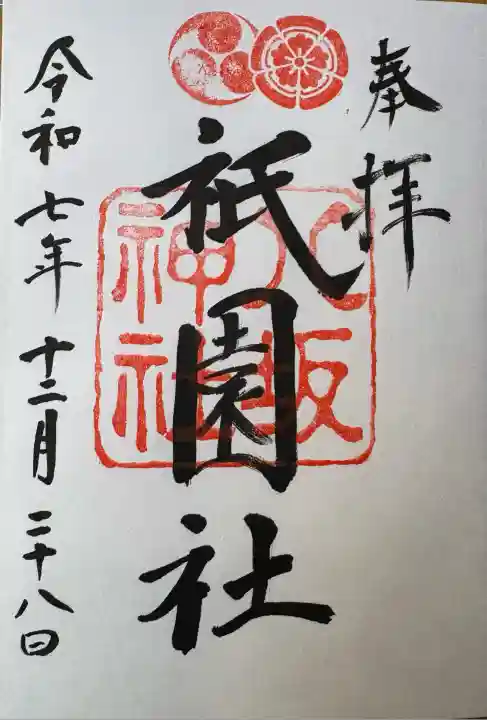 奉拝
八坂神社
祇園社
令和七年十二月二十八日